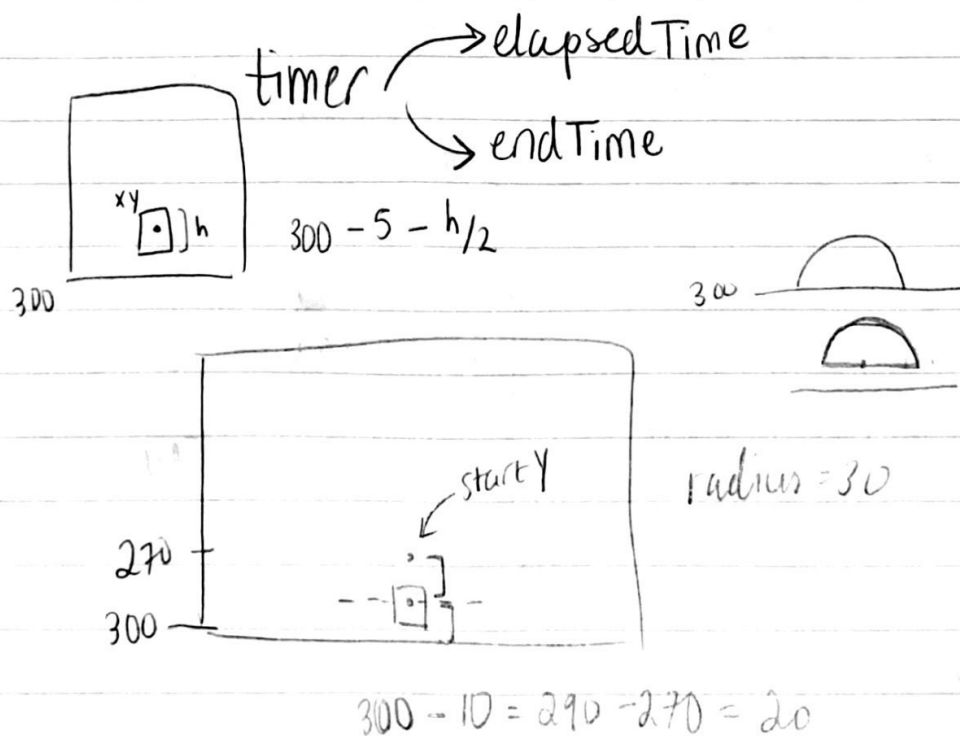 timer
elapsedTime
endTime
xy
h
300 - 5 - h/2
300
300
startY
radius = 30
270
300
300 - 10 = 290 - 270 = 20